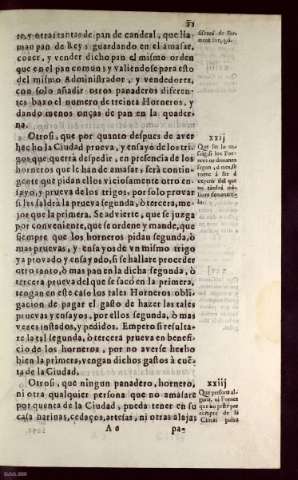 te, y otras tantas de pan de candeal, que lla-
man pan de Rey; guardando en el amasar,
cozer, y vender dicho pan el mismo orden
que en el pan comun; y valiendose para esto
del mismo Administrador, y vendedores,
con solo añadir otros panaderos diferen-
tes baxo el numero de treinta Horneros, y
dando menos onças de pan en la quader-
na.
Otrosi, que por quanto despues de aver
hecho la Ciudad prueva, y ensayo de los tri-
gos que querrà despedir, en presencia de los
horneros que le han de amasar, serà contin-
gente que pidan ellos viciosamente otro en-
sayo, y prueva de los trigos, por solo provar
si les saldrà la prueva segunda, ò tercera, me-
jor que la primera. Se advierte, que se juzga
por conveniente, que se ordene, y mande, que
siempre que los horneros pidan segunda, ò
mas pruevas, y ensayos de vn mismo trigo
ya provado y ensayado, si se hallare proceder
otro tanto, ò mas pan en la dicha segunda, ò
tercera prueva del que se sacò en la primera,
tengan en este caso los tales Horneros obli-
gacion de pagar el gasto de hazer las tales
pruevas y ensayos, por ellos segunda, ò mas
vezes instados, y pedidos. Empero si resulta-
re la tal segunda, ò tercera prueva en benefi-
cio de los horneros, por no averse hecho
bien la primera, vengan dichos gastos à cuẽ-
ta de la Ciudad.
Otrosi, que ningun panadero, hornero,
ni otra qualquier persona que no amasare
por quenta de la Ciudad, pueda tener en su
casa harinas, cedaços, artesas, ni otras alajas
pa-
xxij
Que si la
xxiij
Que persona al-
guna, ni Hornos
que no